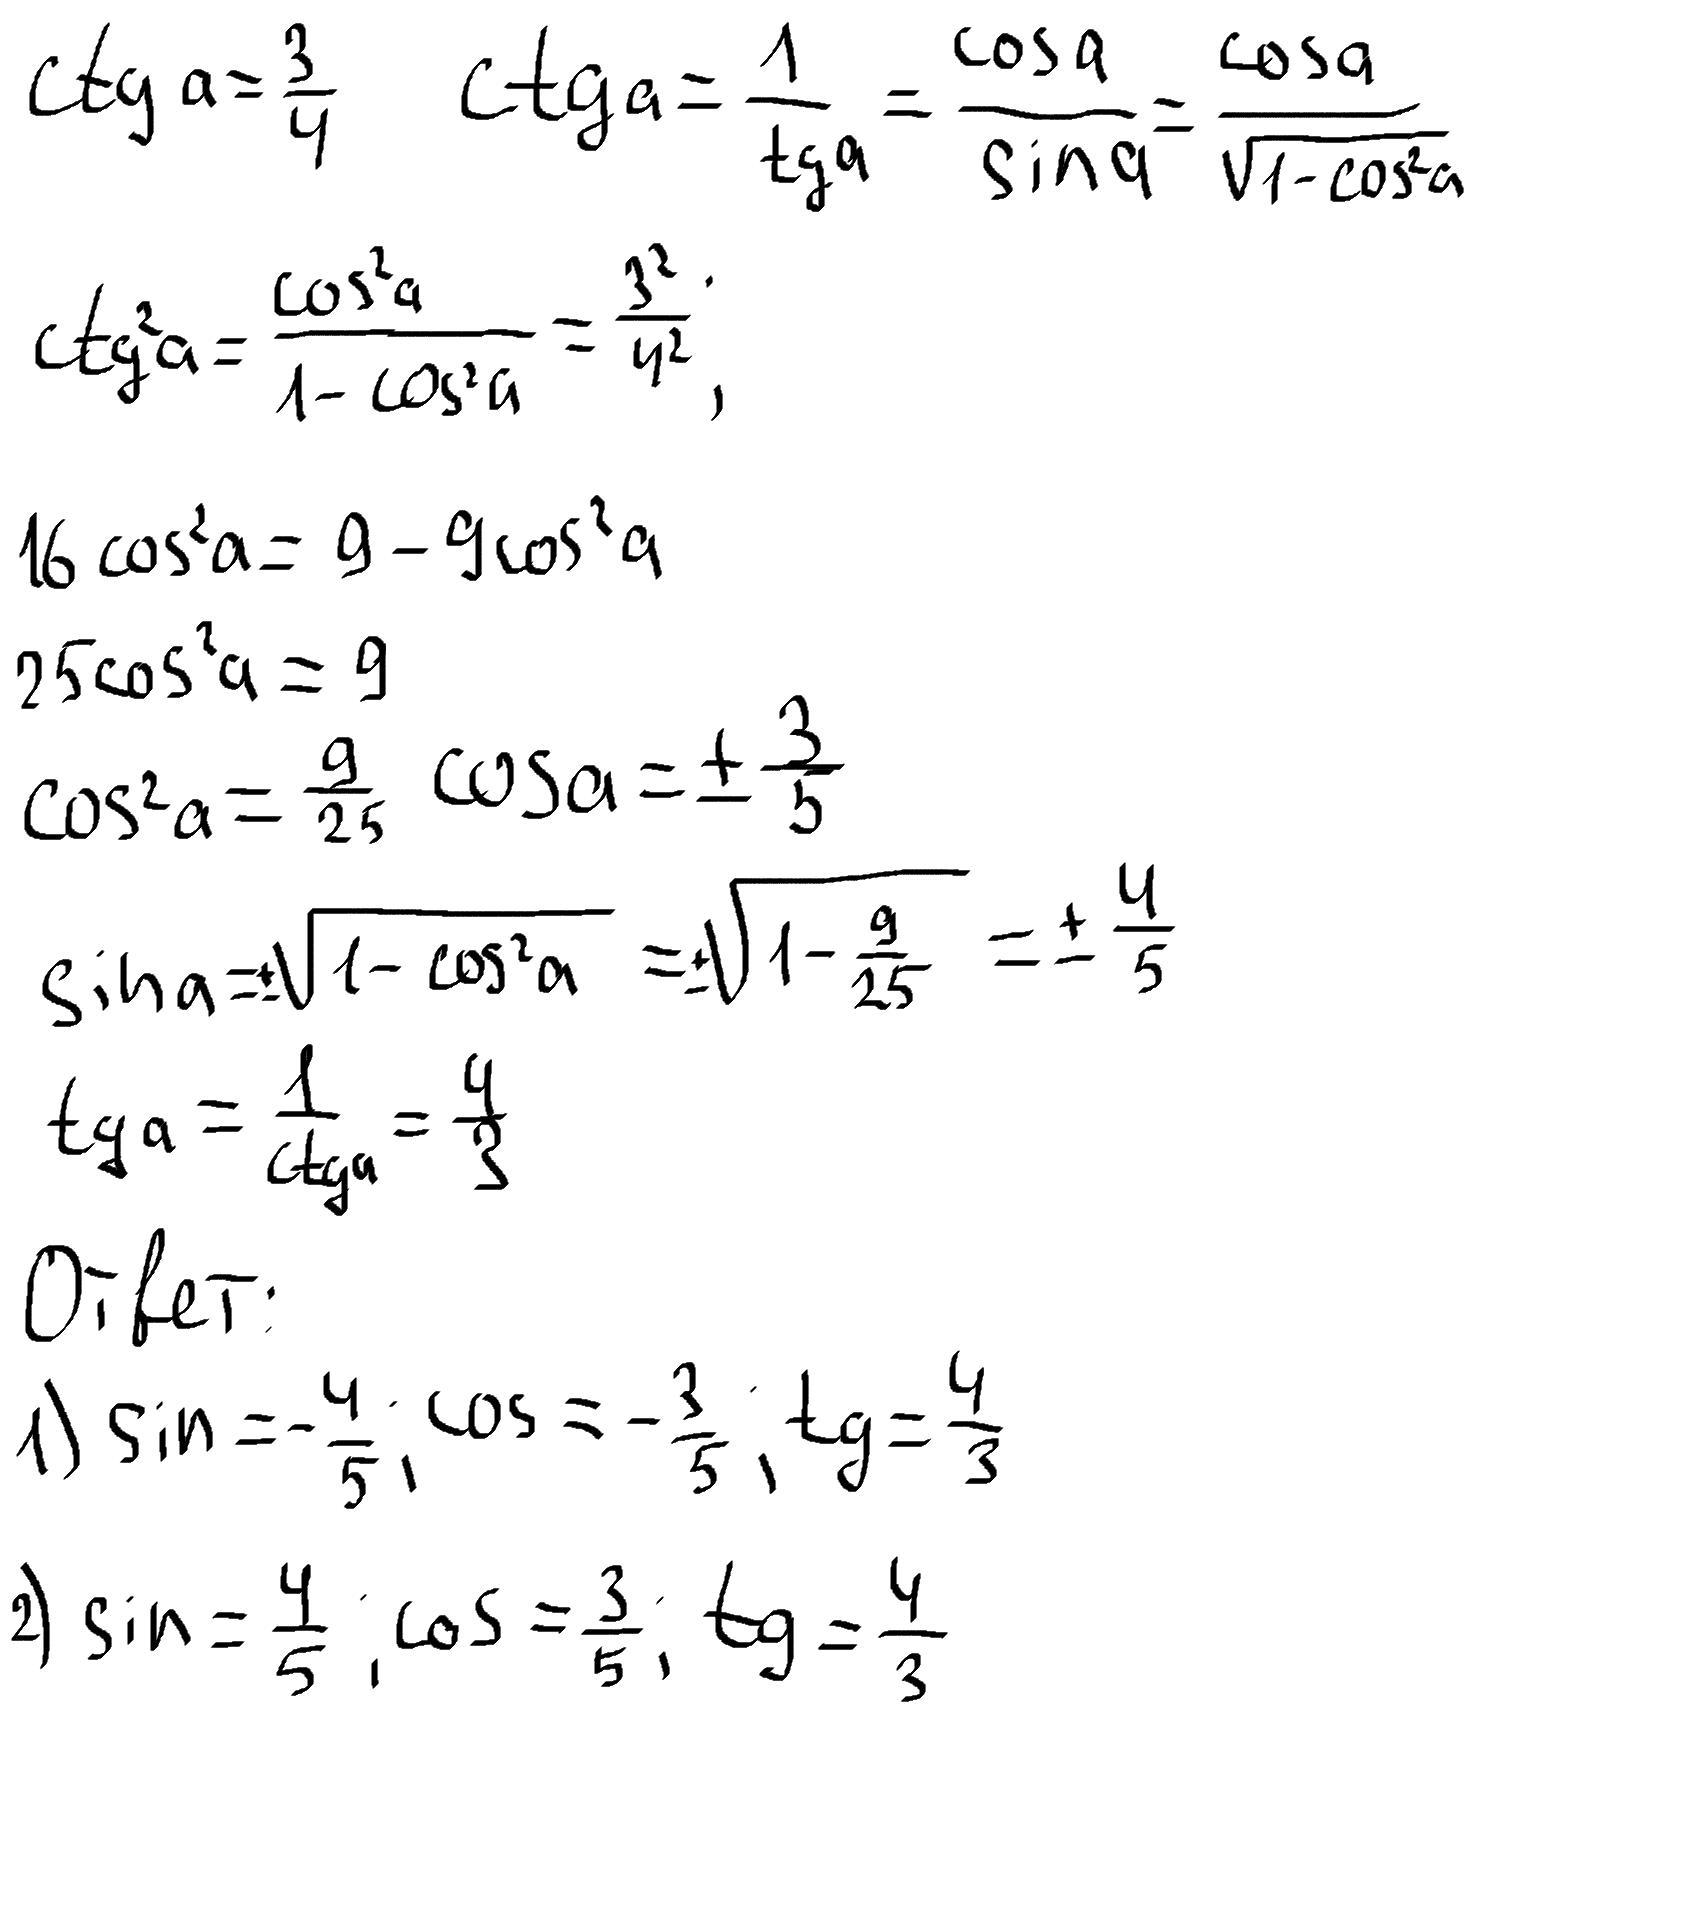 ctg a = 3/4 ctg a = 1/tg a = cos a/sin a = cos a/√(1-cos²a)
ctg²a = cos²a/(1-cos²a) = 3²/4²;
16 cos²a = 9 - 9cos²a
25cos²a = 9
cos²a = 9/25 cos a = ± 3/5
sin a = ±√(1-cos²a) = ±√(1-9/25) = ± 4/5
tg a = 1/ctg a = 4/3
Ответ:
1) sin = -4/5; cos = -3/5; tg = 4/3
2) sin = 4/5; cos = 3/5; tg = 4/3